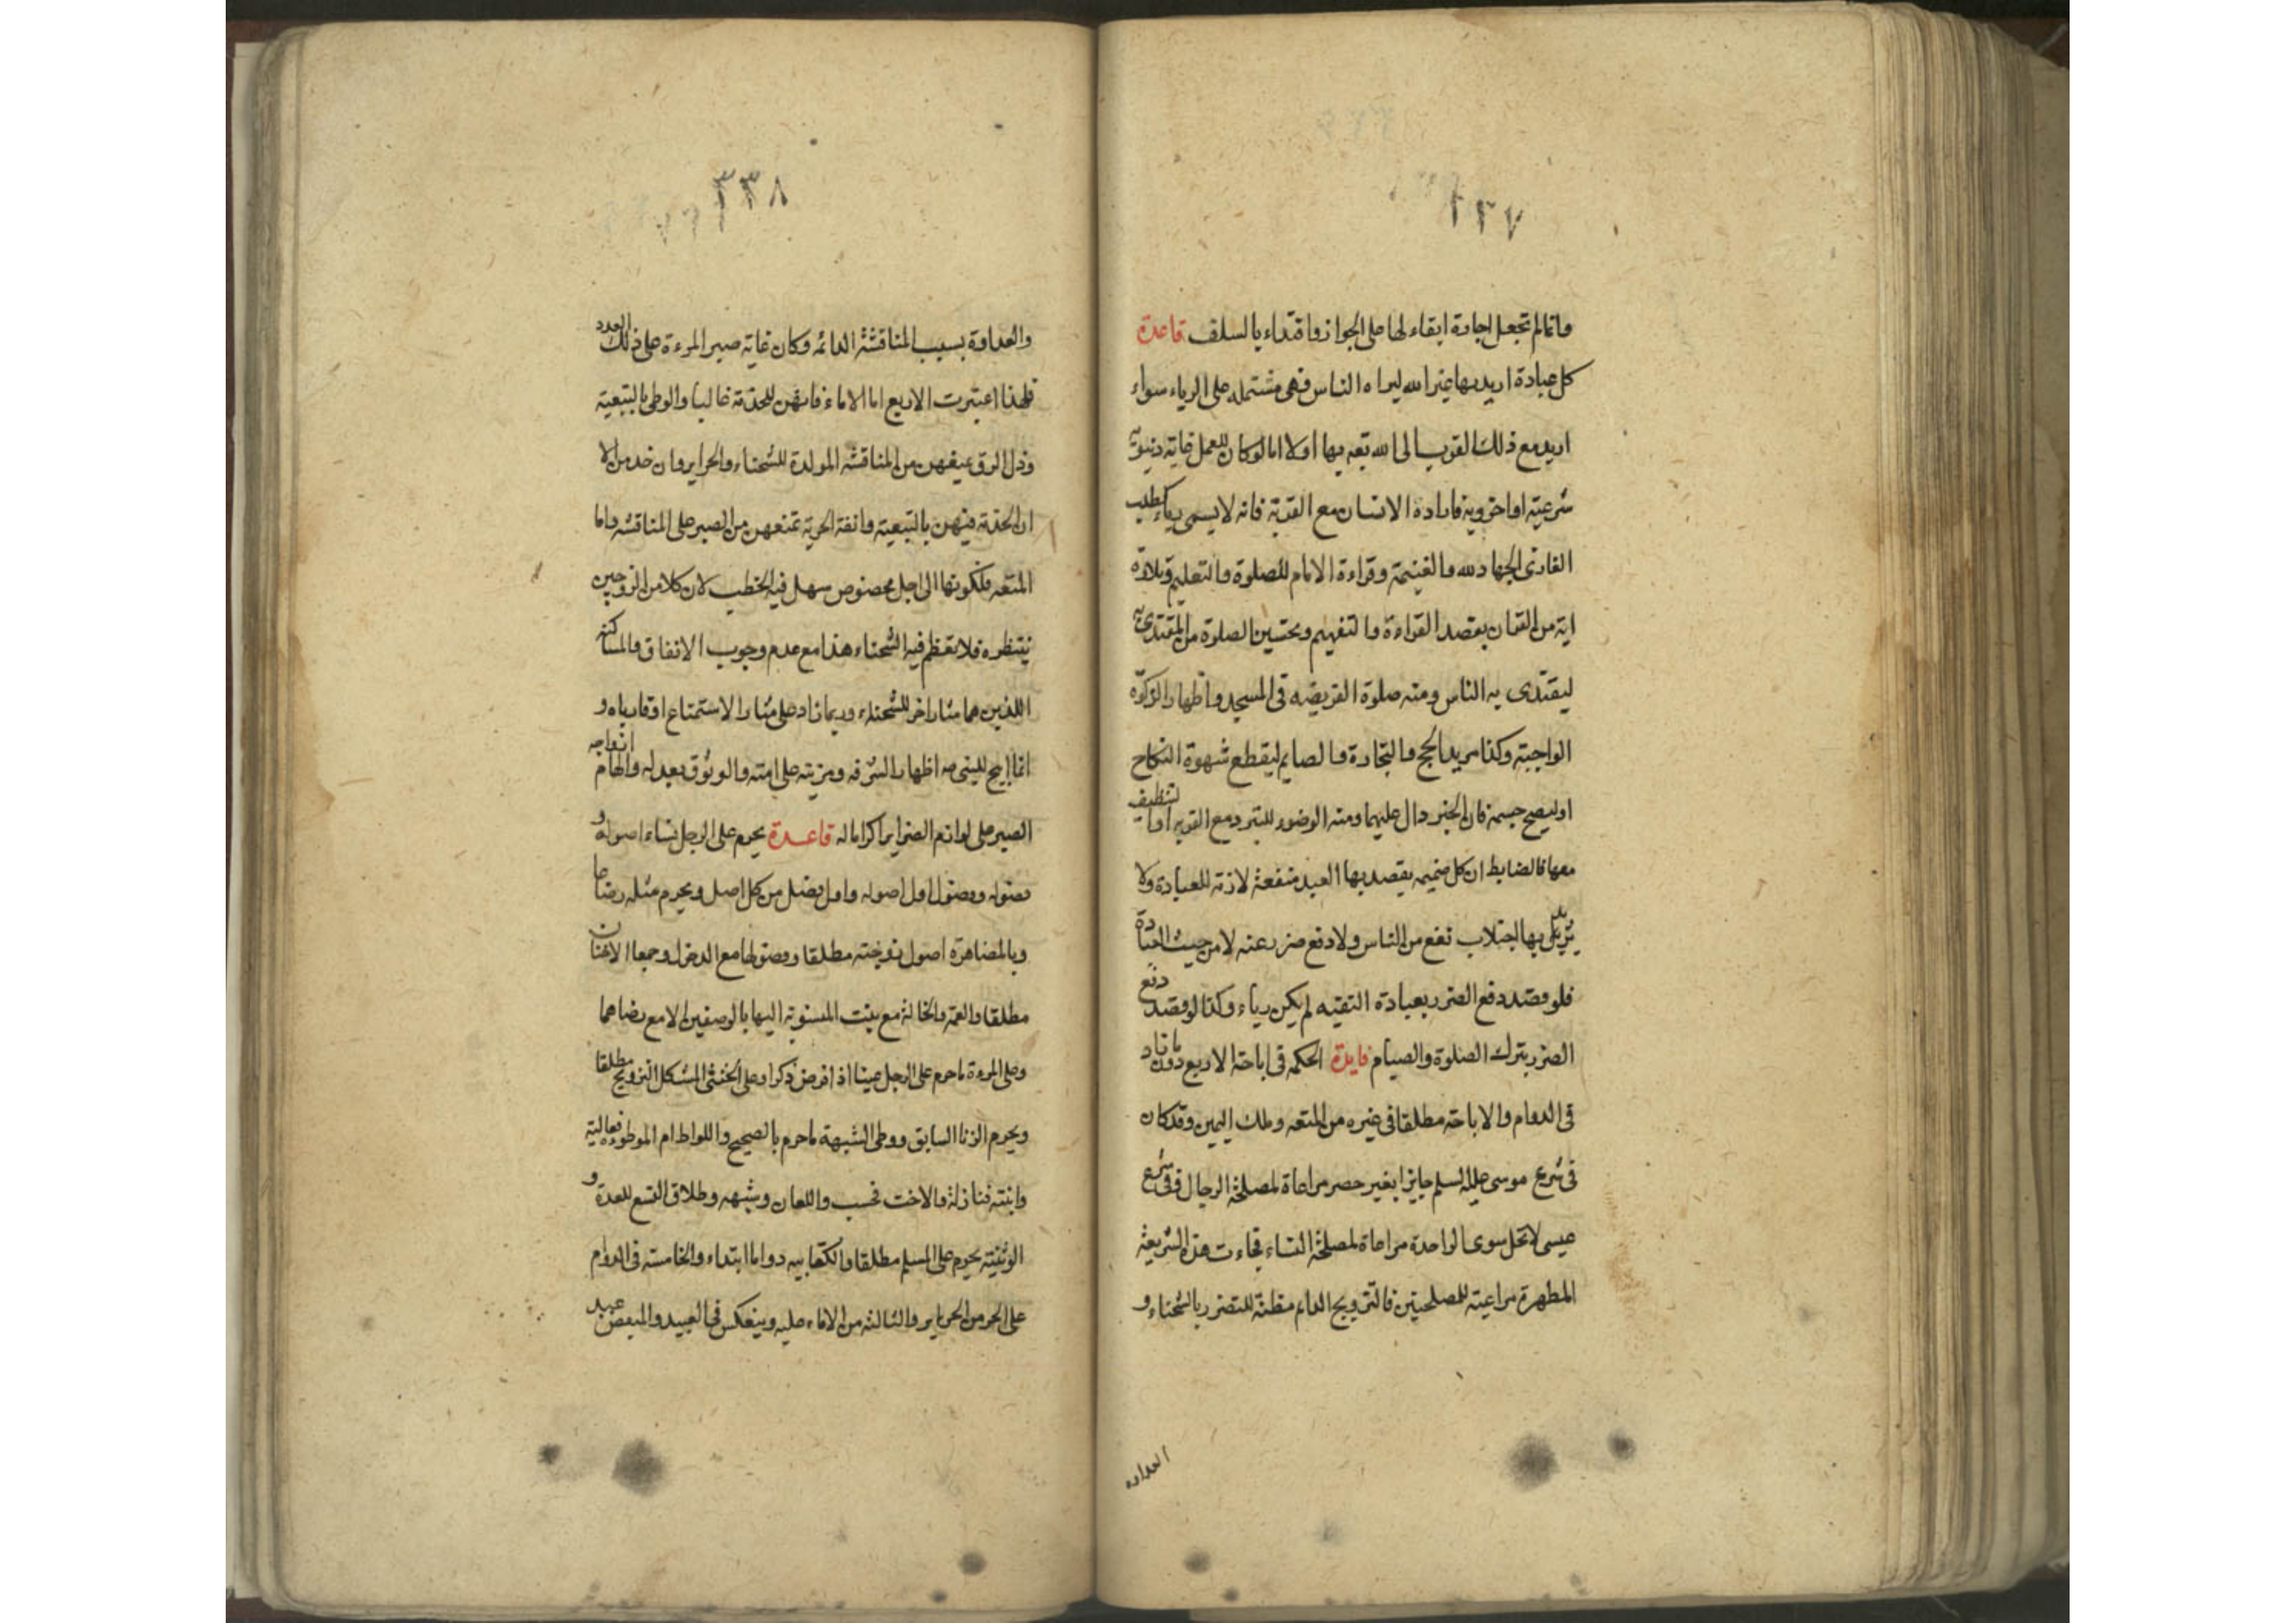 ٣٣٧
وانما لم تجعل اجارة ابقاء لها على الجواز واقتداء بالسلف قاعدة
كل عبادة اريد بها غير الله ليراه الناس فهي مشتمله على الرياء سواء
اريد مع ذلك القرب الى الله تعه بها اولا اما لوكان للعمل غاية دنيوية
شرعية او اخروية فاراده الانسان مع القربة فانه لا يسمى رياء كطلب
الغازى الجهاد لله والغنيمة وقراءة الامام للصلوة والتعليم وتلاوة
اية من القران بقصد القراءة والتفهيم وتحسين الصلوة من المقتدى به
ليقتدى به الناس ومنه صلوة الفريضه فى المسجد واظهار الزكوة
الواجبة وكذا مريد الحج والتجارة والصايم ليقطع شهوة النكاح
اوليصح جسمه فان الخبر دال عليهما ومنه الوضوء للتبرد مع القربه او لتنظيف
معها فالضابط ان كل ضميمه يقصد بها العبد منفعة لازمة للعبادة ولا
يريد بها اجتلاب نفع من الناس ولا دفع ضرر عنه لا من حيث العبادة
فلو قصد دفع الضرر بعبادة التقيه لم يكن رياء وكذا لو قصد دفع
الضرر بترك الصلوة والصيام فايدة الحكمه فى اباحة الاربع دون ما زاد
فى الدوام والاباحة مطلقا فى غيره من المتعه وملك اليمين وقد كان
فى شرع موسى عليه السلم جايزا بغير حصر مراعاة لمصلحة الرجال وفى شرع
عيسى لا تحل سوى الواحدة مراعاة لمصلحة النساء فجاءت هذه الشريعة
المطهرة مراعية للمصلحتين فالتزويج الدائم مظنة للتضرر بالشحناء و
العداوة
٣٣٨
والعداوة بسبب المناقشة الدائمه وكان غاية صبر المرءة على ذلك العدد
فلهذا اعتبرت الاربع اما الاماء فانهن للخدمة غالبا والوطى بالتبعية
وذل الرق يمنعهن من المناقشه المولدة للشحناء والحراير وان خدمن الا
ان الخدمة فيهن بالتبعية وانفة الحرية تمنعهن من الصبر على المناقشه واما
المتعه فلكونها الى اجل مخصوص سهل فيه الخطب لان كلا من الزوجين
ينتظره فلا تعظم فيه الشحناء هذا مع عدم وجوب الانفاق والمساكنه
اللذين هما مثار اخر للشحناء وربما زاد على مثار الاستمتاع او قارباه و
انما ابيح للنبى صه اظهارا لشرفه ومزيته على امته والوثوق بعدله والهام ازواجه
الصبر على لوازم الضراير اكراما له قاعدة يحرم على الرجل نساء اصوله و
فصوله وفصول اول اصوله واول فصل من كل اصل ويحرم مثله رضاعا
وبالمصاهرة اصول زوجته مطلقا وفصولها مع الدخول وجمعا الاختان
مطلقا والعمة والخالة مع بنت المنسوبة اليها بالوصفين الا مع رضاهما
وعلى المرءة ما حرم على الرجل عينا اذا فرض ذكرا وعلى الخنثى المشكل التزويج مطلقا
ويحرم الزنا السابق ووطى الشبهة ما حرم بالصحيح واللواط ام الموطوء فعالية
وابنته فنازلة والاخت فحسب واللعان وشبهه وطلاق التسع للعدة و
الوثنية يحرم على المسلم مطلقا والكتابيه دواما ابتداء والخامسه فى الدوام
على الحر من الحراير والثالثة من الاماء عليه وينعكس فى العبيد والمبعض عبد